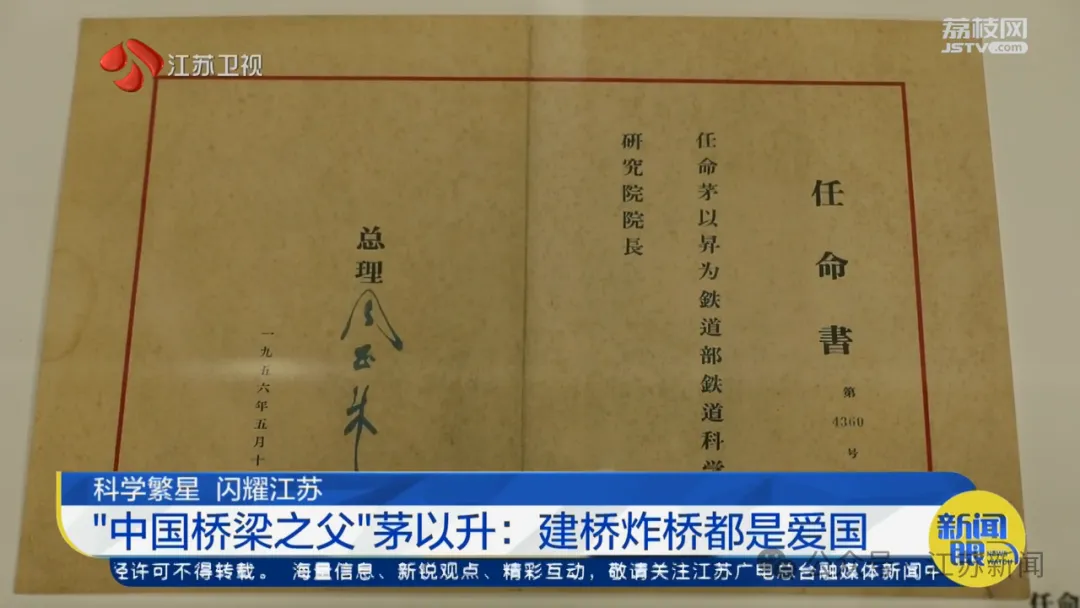 江苏卫视
荔枝网
JSTV.com
任命書
第4360号
任命茅以昇为鉄道部鉄道科学
研究院院長
总理
周恩来
一九五六年五月十
科学繁星 闪耀江苏
"中国桥梁之父"茅以升：建桥炸桥都是爱国
新闻
眼
公众号·江苏新闻
经许可不得转载。 海量信息、新锐观点、精彩互动，敬请关注江苏广电总台融媒体新闻中
任命